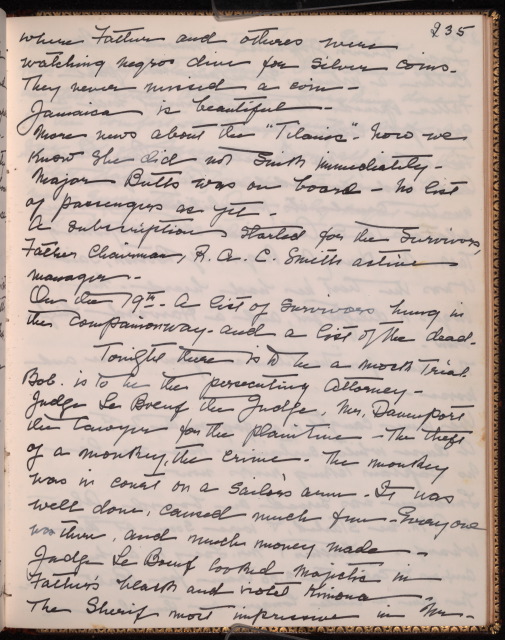 235
where Father and others were
watching negros dive for silver coins -
They never missed a coin -
Jamaica is beautiful -
More news about the "Titanic" - now we
know she did not sink immediately -
Major Butts was on board - no list
of passengers as yet -
A subscription started for the Survivors,
Father Chairman, R. A. C. Smith active
manager -
On the 19th - A list of Survivors hung in
the companionway - and a list of the dead -
Tonight there is to be a mock Trial
Bob. is to be the persecuting Attorney -
Judge Le Boeuf the Judge, Mr. Davenport
the lawyer for the plaintive - The theft
of a monkey, the crime - The monkey
was in court on a Sailor's arm - It was
well done, caused much fun - Everyone
was there, and much money made -
Judge Le Boeuf looked majestic in
Father's black and violet Kimona
The Sherif most impressive in